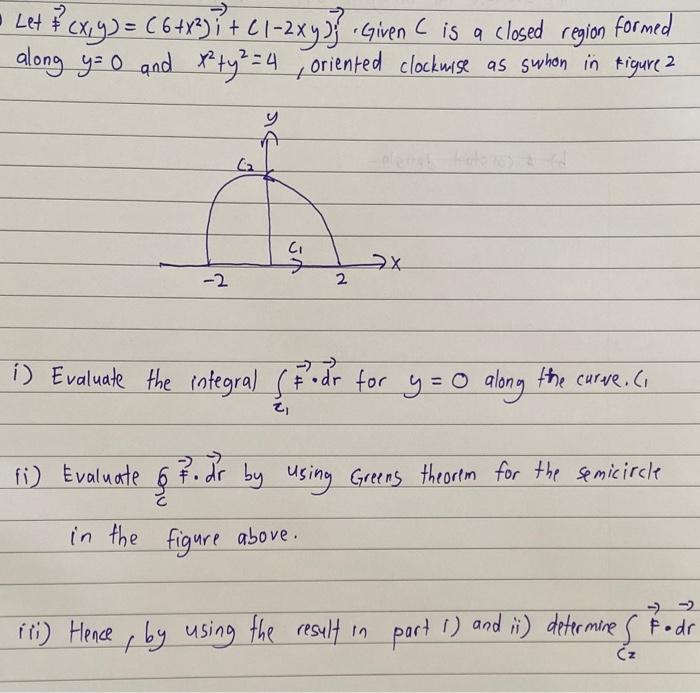 Let F⃗ (x,y) = (6+x²)i⃗ + (1-2xy)j⃗ . Given C is a closed region formed
along y=0 and x²+y²=4 , oriented clockwise as swhon in figure 2
y
C₂
C₁
x
-2
2
i) Evaluate the integral ∫ F⃗ • dr⃗ for y = 0 along the curve. C₁
C₁
ii) Evaluate ∮ F⃗ . dr⃗ by using Greens theorem for the semicircle
C
in the figure above.
iii) Hence , by using the result in part i) and ii) determine ∫ F⃗ • dr⃗
C₂